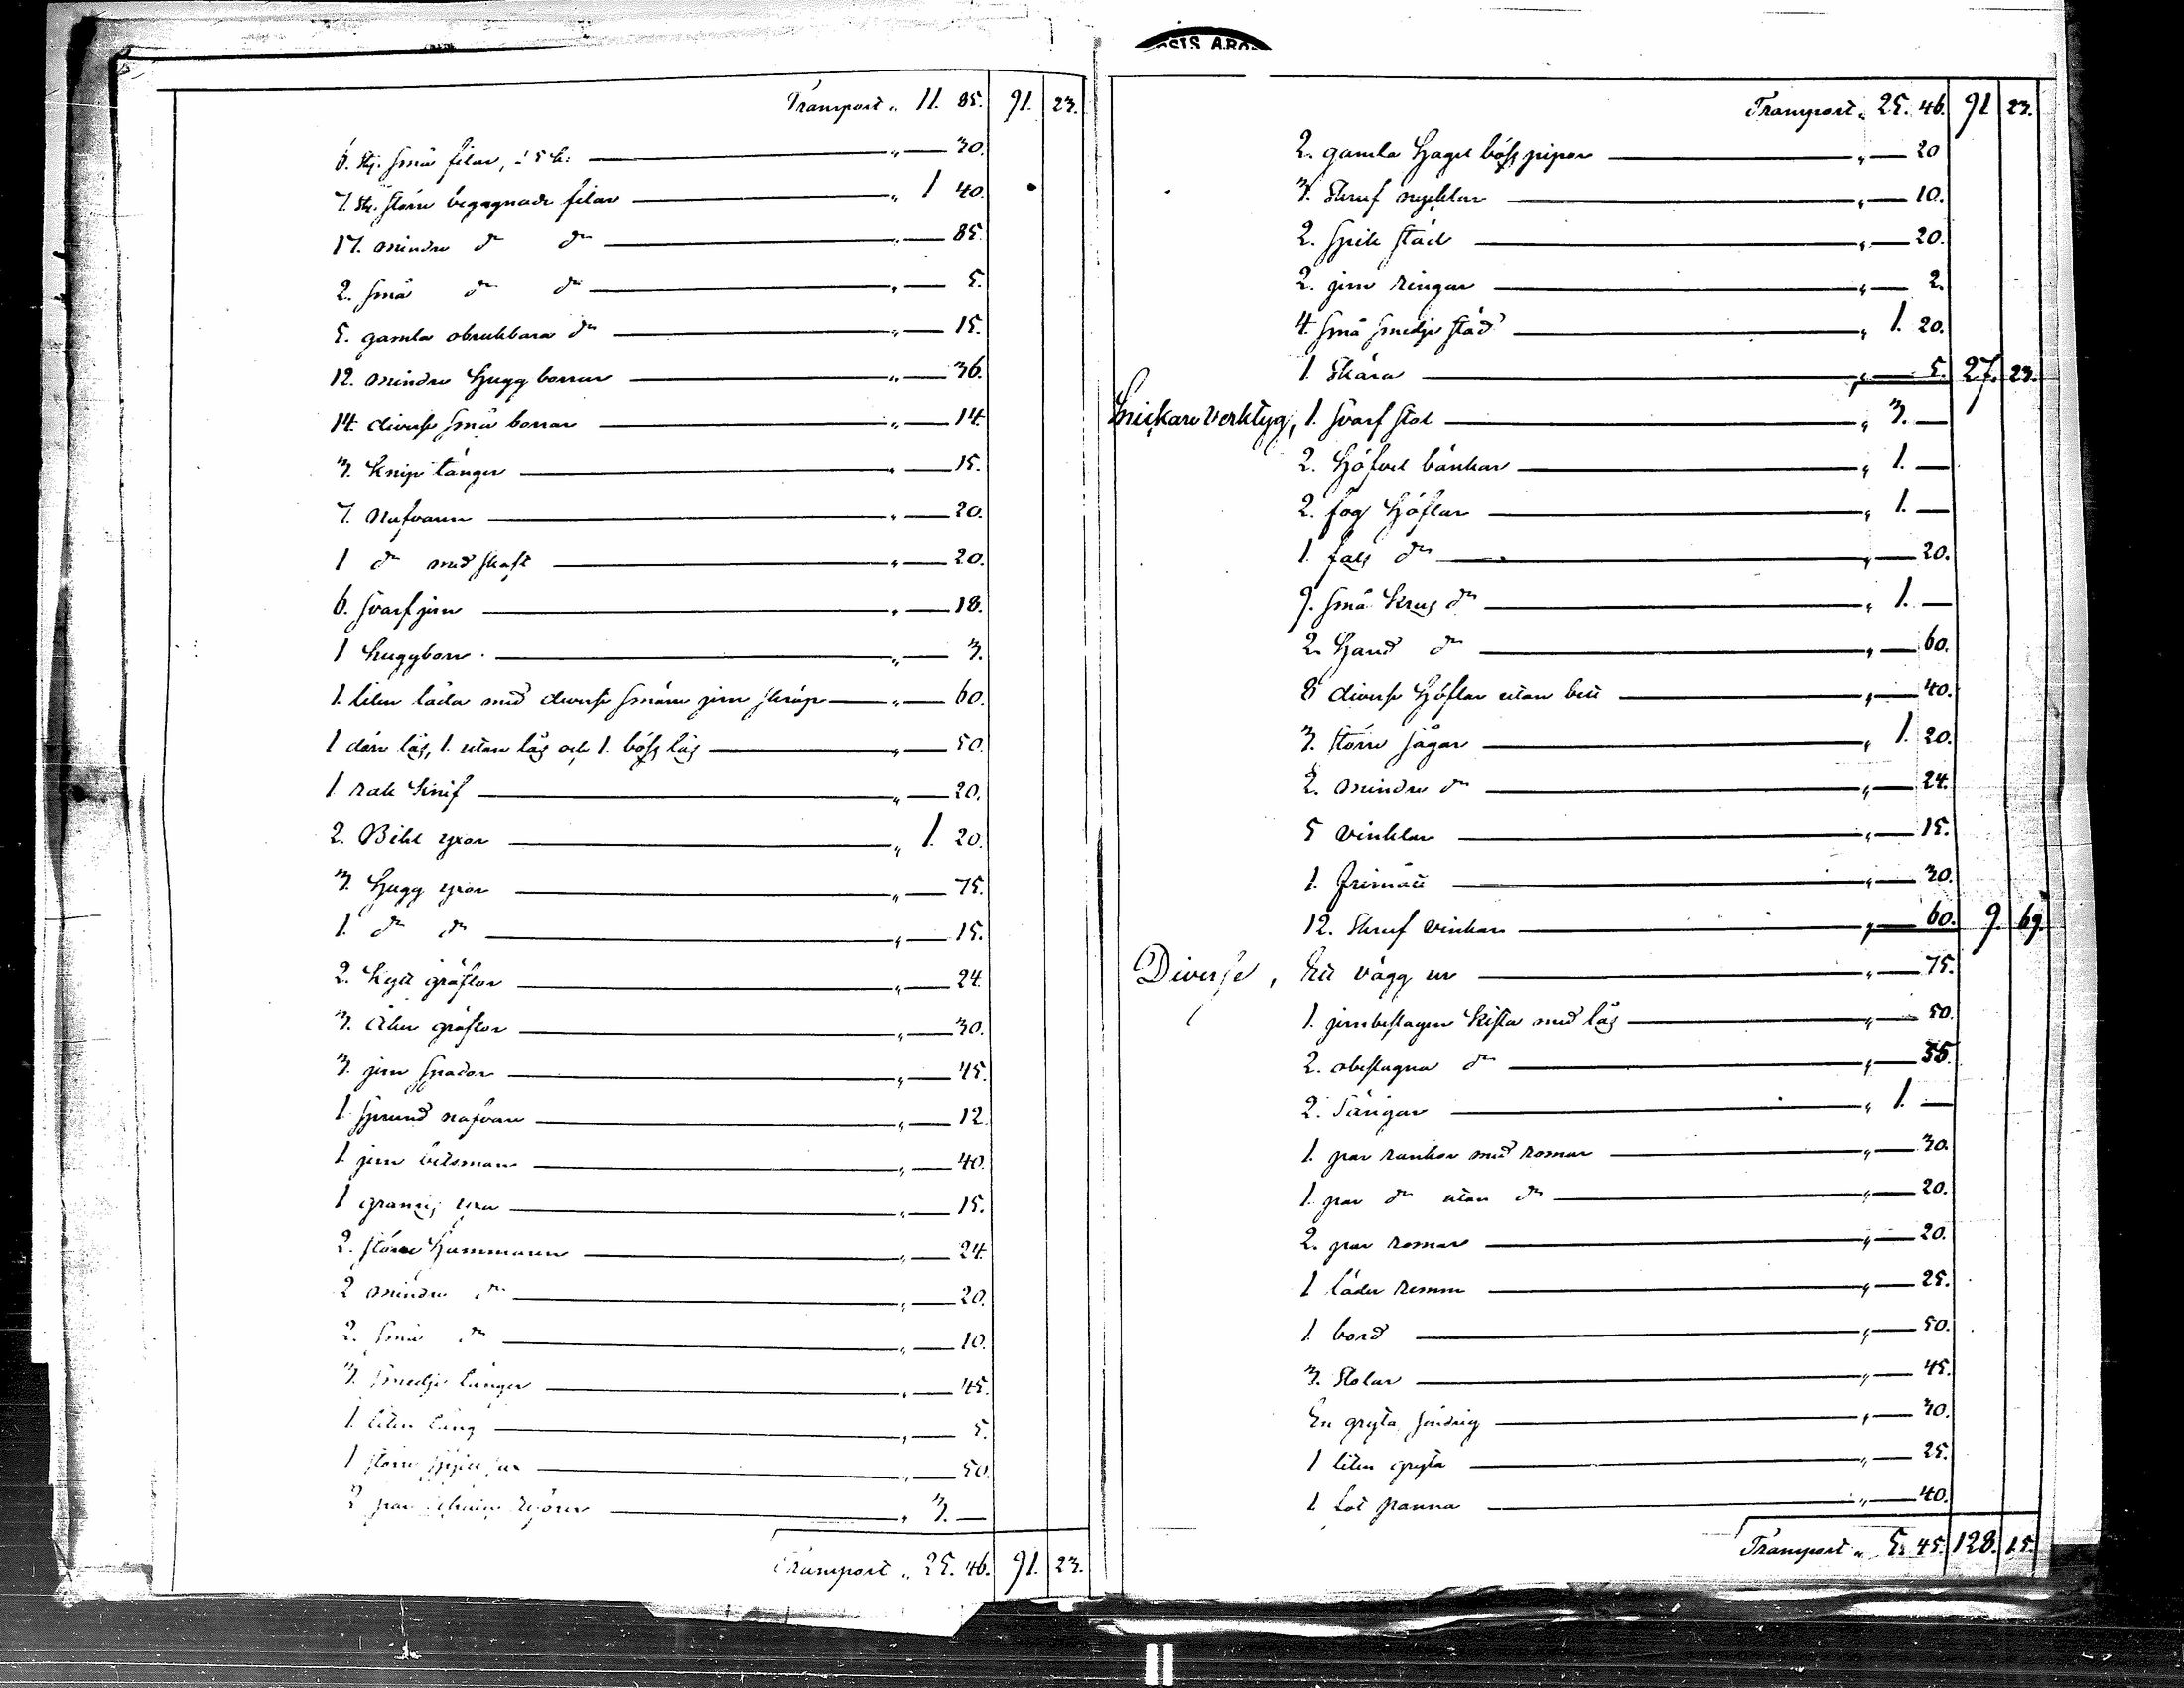 Transport „ 11. 85. 91. 23.
6. st. små filar, á 5 k: „ — 30.
7. st. större begagnade filar „ 1 40.
17. mindre do do „ — 85.
2. små do do „ — 5.
5. gamla obrukbara do „ — 15.
12. mindre Hugg borrar „ — 36.
14. diverse små borrar „ — 14.
3. Knip tänger „ — 15.
7. Nafvare „ — 20.
1 do med skaft „ — 20.
6. svarfjern „ — 18.
1 huggborr „ — 3.
1. liten låda med diverse smärre jern skräp „ — 60.
1 dörr lås, 1. utan lås och 1. böss lås „ — 50.
1 rak knif „ — 20.
2. Bihl yxor „ 1. 20.
3. Hugg yxor „ — 75.
1. do do „ — 15.
2. Kytt gräftor „ — 24.
3. Åker gräftor „ — 30.
3. jern spador „ — 45.
1 sprund nafvare „ — 12.
1. jern bitsman „ — 40.
1 yxa „ — 15.
2. större Hammare „ — 24.
2 mindre do „ — 20.
2. små do „ — 10.
3. smedje tänger „ — 45.
1. liten tång „ — 5.
1 större „ — 50.
2 par „ 3. —
Transport „ 25. 46. 91. 23.
Transport „ 25. 46. 91 23.
2. gamla Hagel böss pipor „ — 20
3. Skruf nycklar „ — 10.
2. spik städ „ — 20.
2. jern ringar „ — 2.
4. små smedje städ „ 1. 20.
1. Skära „ — 5. 27. 23.
Snickare verktyg, 1. svarf stol „ 3. —
2. Höfvel bänkar „ 1. —
2. fog Höflar „ 1. —
1. fals do „ — 20.
9. små Krus do „ 1. —
2. Hand do „ — 60.
8 diverse Höflar utan bett „ — 40.
3. större sågar „ 1. 20.
2. mindre do „ — 24.
5 vinklar „ — 15.
1. „ — 30.
12. Skruf vinkar „ — 60. 9. 69.
Diverse, Ett vägg ur „ — 75.
1. jernbeslagen Kista med lås „ — 50.
2. obeslagna do „ — 35.
2. Sängar „ 1. —
1. par rankor med romar „ — 30.
1. par do utan do „ — 20.
2. par romar „ — 20.
1 läder remm „ — 25.
1 bord „ — 50.
3. Stolar „ — 45.
En gryta söndrig „ — 30.
1 liten gryta „ — 25.
1 Kok panna „ — 40.
Transport „ 5. 45. 128. 15.